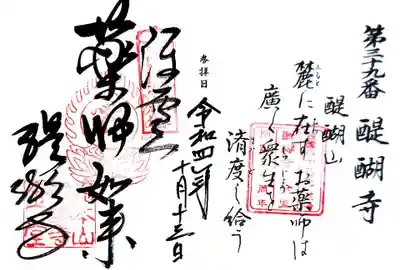 第三十九番 醍醐寺
醍醐山
麓に在す お薬師は
廣く衆生を
済度し給う
参拝日
令和四年
十月十三日
薬師如来
醍醐寺